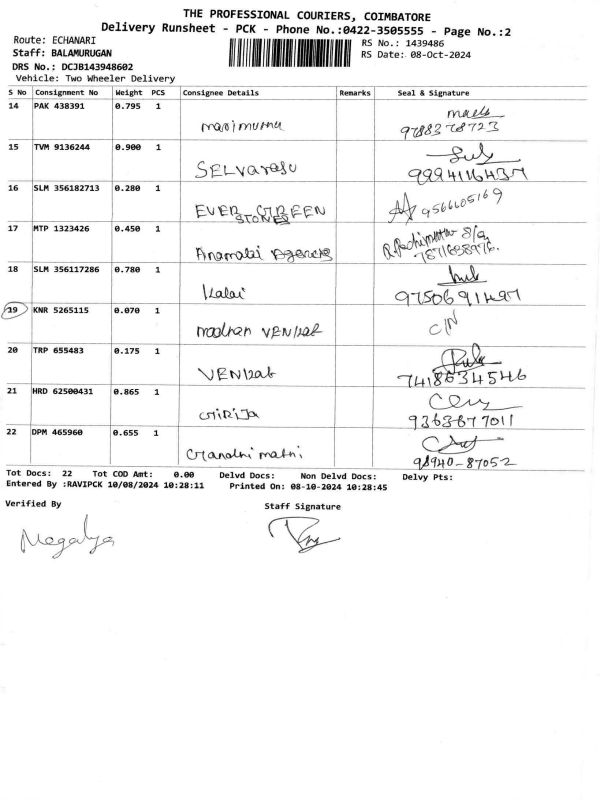 THE PROFESSIONAL COURIERS, COIMBATORE
Delivery Runsheet - PCK - Phone No.:0422-3505555 - Page No.:2
Route: ECHANARI
RS No.: 1439486
Staff: BALAMURUGAN
RS Date: 08-Oct-2024
DRS No.: DCJB143948602
Vehicle: Two Wheeler Delivery
S No Consignment No Weight PCS Consignee Details Remarks Seal & Signature
14 PAK 438391 0.795 1 marimuthu
9788378723
15 TVM 9136244 0.900 1 SELVARASU
9994116437
16 SLM 356182713 0.280 1 EVER GREEN STONES 9566605169
17 MTP 1323426 0.450 1 Anamalai Agencies
7871698976.
18 SLM 356117286 0.780 1 Kalai
9750691497
19 KNR 5265115 0.070 1 madhan VENKAT C/N
20 TRP 655483 0.175 1 VENKAT
7418634546
21 HRD 62500431 0.865 1 GIRIJA
9363677011
22 DPM 465960 0.655 1
98940-87052
Tot Docs: 22 Tot COD Amt: 0.00 Delvd Docs: Non Delvd Docs: Delvy Pts:
Entered By :RAVIPCK 10/08/2024 10:28:11 Printed On: 08-10-2024 10:28:45
Verified By Staff Signature